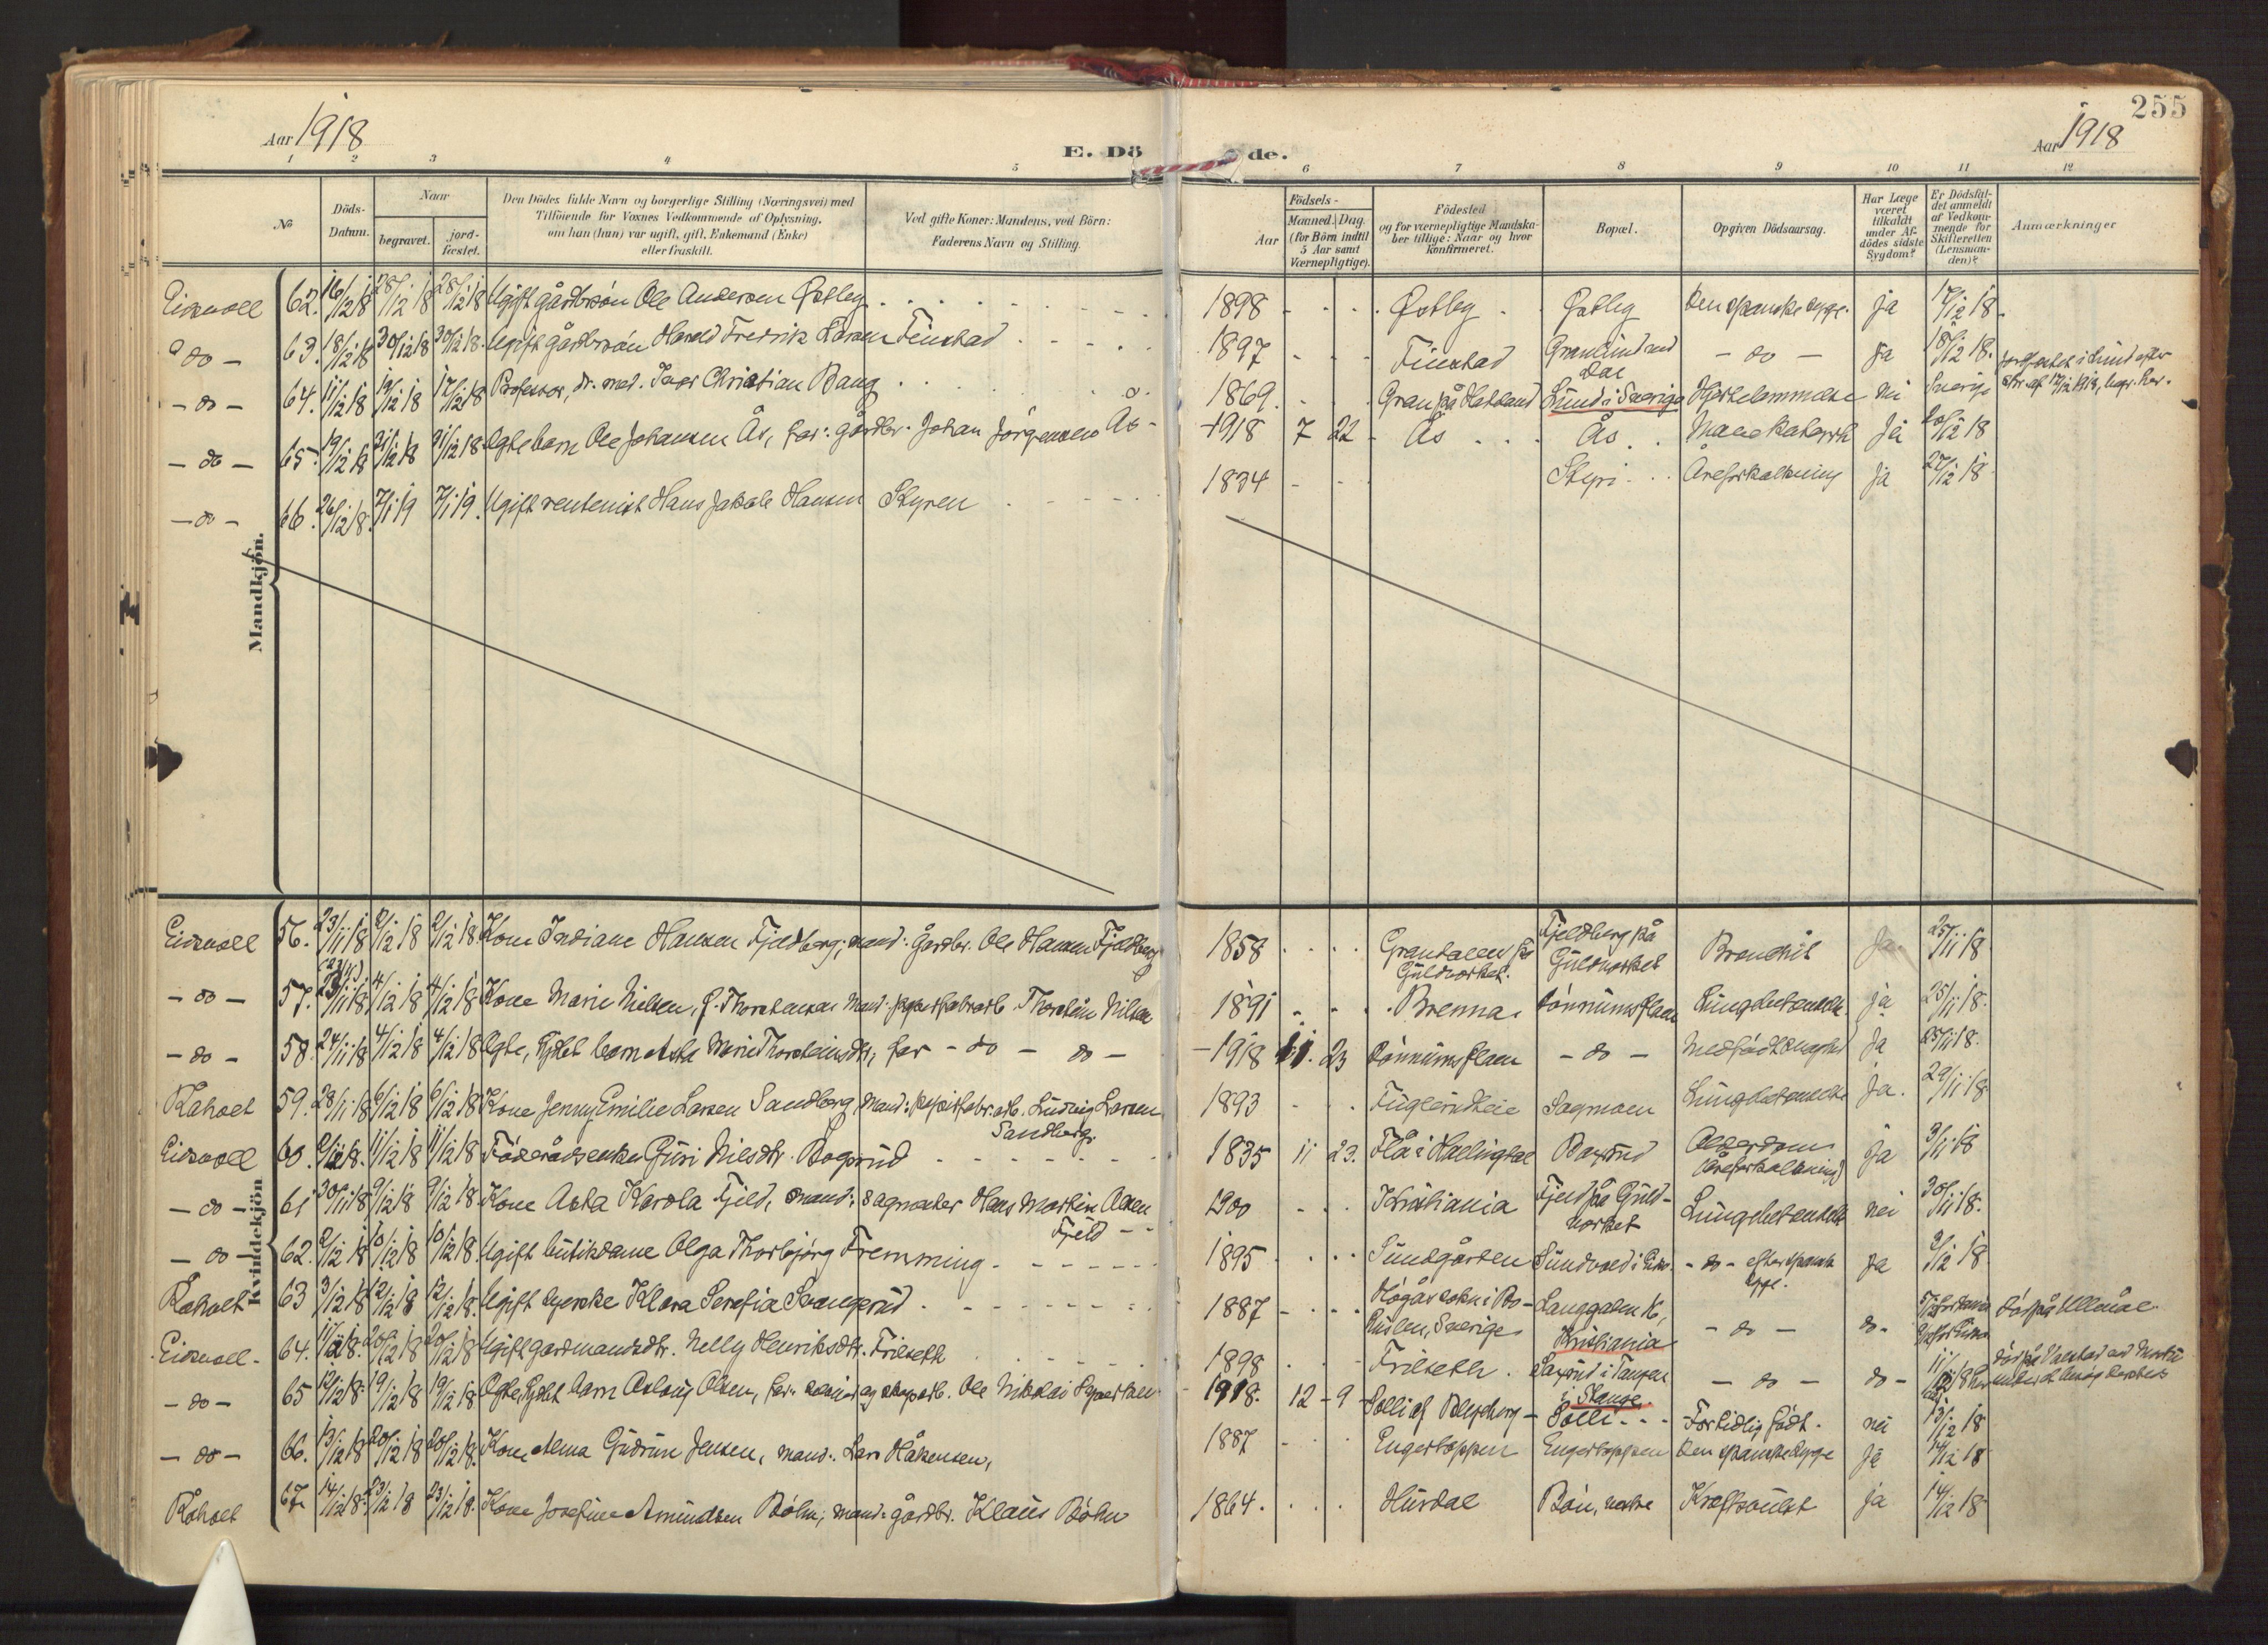 255
Aar 1918
E. Dö de.
Aar 1918
1 2 3 4 5 6 7 8 9 10 11 12
No
Döds-Datum.
Naar
begravet.
jord-fæstet.
Den Dödes fulde Navn og borgerlige Stilling (Næringsvei) med
Tilföiende for Voxnes Vedkommende af Oplysning,
om han (hun) var ugift, gift, Enkemand (Enke)
eller fraskilt.
Ved gifte Koner: Mandens, ved Börn:
Faderens Navn og Stilling.
Aar
Födsels-
Maaned. Dag.
(for Börn indtil
5 Aar samt
Værnepligtige).
Födested
og for værnepligtige Mandska-
ber tillige: Naar og hvor
Konfirmeret.
Bopæl.
Opgiven Dödsaarsag.
Har Læge
været
tilkaldt
under Af-
dödes sidste
Sygdom?
Er Dödsfal-
det anmeldt
af Vedkom-
mende for
Skifteretten
(Lensman-
den)?
Anmærkninger
Mandkjön.
Eidsvoll 62. 16/12 18 28/12 18 28/12 18 Ugift gårdbrsön Ole Andersen Østby 1898 Østby Østby Den spanske syge. ja 17/12 18.
- do - 63. 18/12 18 30/12 18 30/12 18. Ugift gårdbrsön Harald Fredrik Larsen Finstad 1897 Finstad Dal - do - ja 18/12 18.
- do - 64. 11/12 18 19/12 18 17/12 18 Professor, dr. med. Ivar Christian Bang 1869. Gran på Hadeland Lund i Sverige Hjertelammelse nei Sverige jordfæstet i Lund efter
17/12 1918, begr. her.
- do - 65. 19/12 18 21/12 18 21/12 18 Ægte barn Ole Johansen Ås, far: gårdbr. Johan Jörgensen Ås - 1918 7 22 Ås Ås Mavekatarrh Ja 20/12 18
- do - 66. 26/12 18. 7/1 19 7/1 19. Ugift rentenist Hans Jakob Hansen Styren 1834 Styri Åreforkalkning ja 27/12 18.
Kvindekjön
Eidsvoll 56. 23/11 18 2/12 18 2/12 18 Kone Indiane Hansen Fjeldberg; mand: Gårdbr. Ole Hansen Fjeldberg 1858 Grandalen på
Guldverket. Fjeldberg på
Guldverket Brendsit Ja 25/11 18
- do - 57. 23/11 18 4/12 18 4/12 18 Kone Marie Nilsen, f. Thorstensen Mand: papirfabrarb. Thorstein Nilsen 1891 Brenna Lungebetændelse. ja 25/11 18.
- do - 58. 24/11 18 4/12 18 4/12 18 Ægte, barn Asta Marie Thorsteinsdtr, far - do - do - 1918 11. 23 - do - Medfödt svaghet Ja 25/11 18.
Råholt 59. 28/11 18 6/12 18 6/12 18 Kone Jenny Emilie Larsen Sandberg Mand: papirfabr.arb. Ludvig Larsen
Sandberg. 1893 Sagmoen Lungebetændelse ja. 29/11 18.
Eidsvoll 60. 2/12 18. 11/12 18 11/12 18 Föderådsenke Guri Nilsdtr. Bogsrud 1835 11 23. Flå i Hallingdal Alderdom
(åreforkalkning) ja 3/11 18
- do - 61 30/11 18 9/12 18 9/12 18 Kone Asta Karola Fjeld, mand: sagmester Hans Martin Olsen
Fjeld 1900 Kristiania Fjeld på Guld-
verket Lungebetændelse nei 30/11 18.
- do - 62. 2/12 18 10/12 18 10/12 18. Ugift butikdame Olga Thorbjørg Fremming 1895 Sundgården - do - efter spansk
syge. ja 2/12 18
Råholt 63 3/12 18 12/12 18 12/12 18. Ugift Klara Serafia Svangsrud 1887 Sverige Langgaten 16,
Kristiania - do - do - död på Ullevål
Eidsvoll - 64. 11/12 18. 20/12 18 20/12 18 Ugift gardmandsdtr. Nelly Henriksdtr. Frilseth 1898 Frilseth. i Tangen
i Stange - do - do -
- do - 65 12/12 18. 19/12 18 19/12 18 Ægte, barn Aslaug Olsen, far: Ole Nikolai 1918. 12 - 9 Solli Fortidlig födt. nei 13/12 18
- do - 66. 13/12 18 20/12 18 20/12 18. Kone Alma Gudrun Jensen, mand: Lars Håkensen, 1887 Engertoppen Engertoppen Den spanske syge Ja 14/12 18
Råholt 67. 14/12 18. 23/12 18 23/12 18. Kone Josefine Amundsen Böhn; mand: gårdbr. Klaus Böhn 1864. Hurdal Bön, vestre Kræftsvulst ja 14/12 18